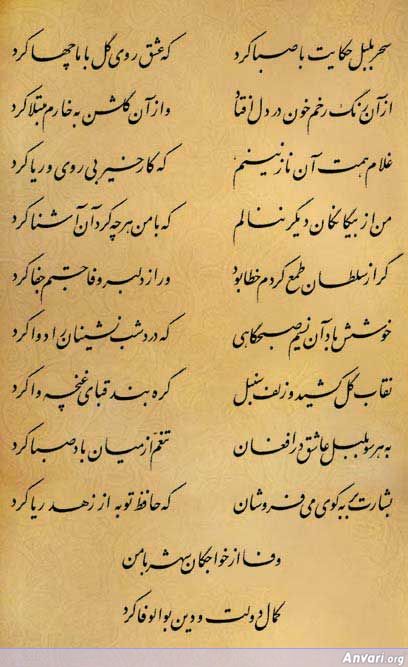 سحر بلبل حکایت با صبا کرد که عشق روی گل با ما چها کرد
از آن رنگ رخم خون در دل افتاد و از آن گلشن به خارم مبتلا کرد
غلام همت آن نازنینم که کار خیر بی روی و ریا کرد
من از بیگانگان دیگر ننالم که با من هر چه کرد آن آشنا کرد
گر از سلطان طمع کردم خطا بود ور از دلبر وفا جستم جفا کرد
خوشش باد آن نسیم صبحگاهی که درد شب نشینان را دوا کرد
نقاب گل کشید و زلف سنبل گره بند قبای غنچه وا کرد
به هر سو بلبل عاشق در افغان تنعم از میان باد صبا کرد
بشارت بر به کوی می فروشان که حافظ توبه از زهد ریا کرد
وفا از خواجگان شهر با من
کمال دولت و دین بوالوفا کرد
Anvari.org